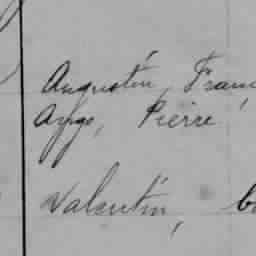 Augustin, Fran
Ange, Pierre
Valentin, b